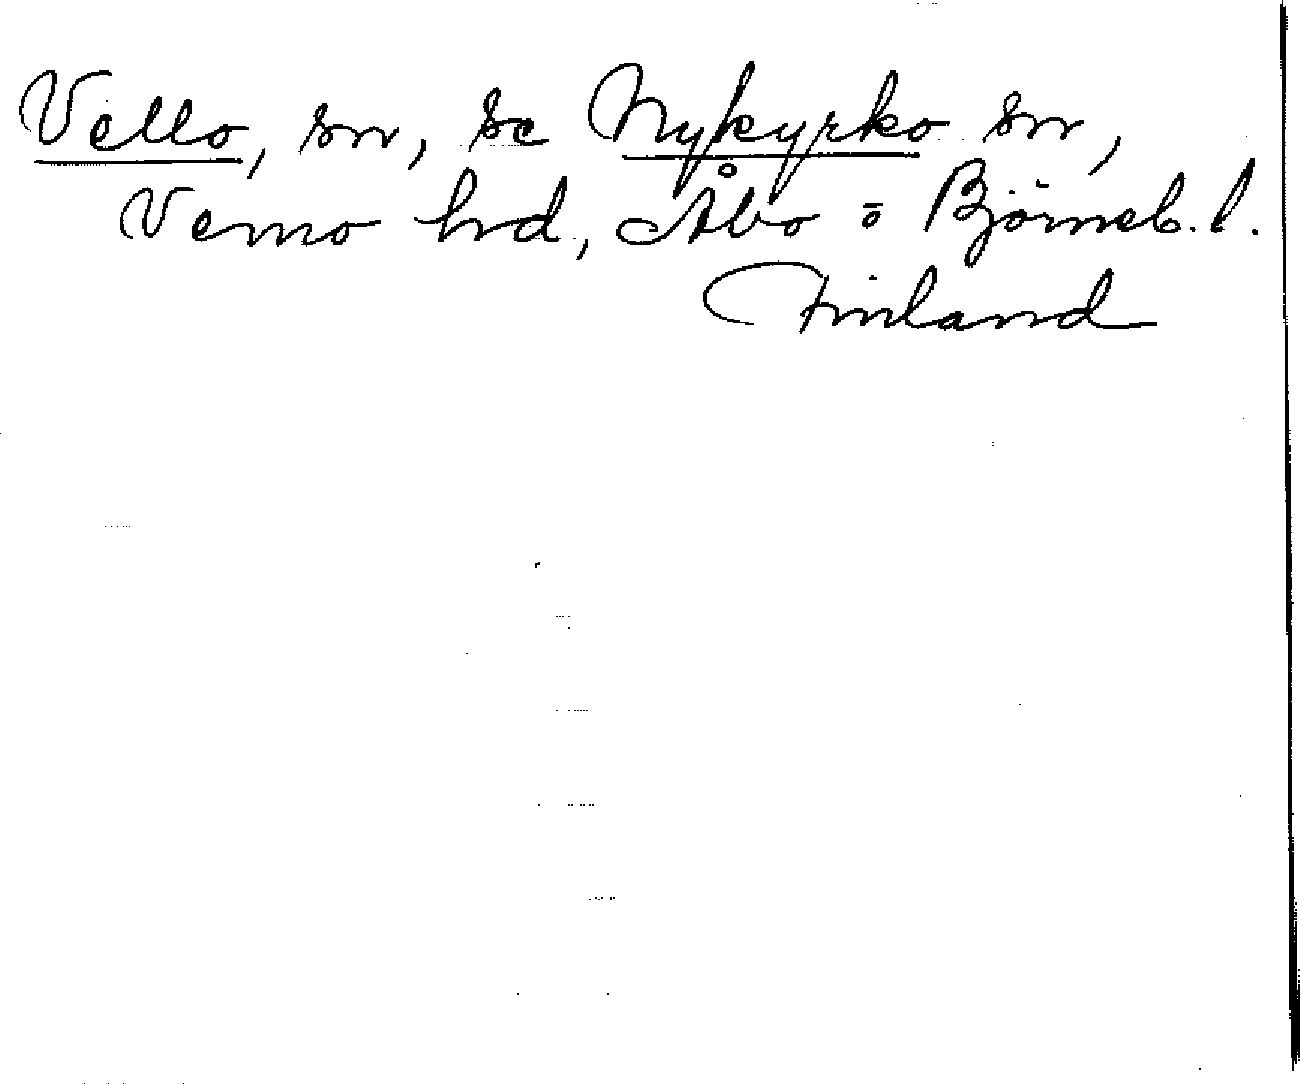 Vello, sn, se Nykyrko sn,
Vemo hrd, Åbo o Björneb. l.
Finland